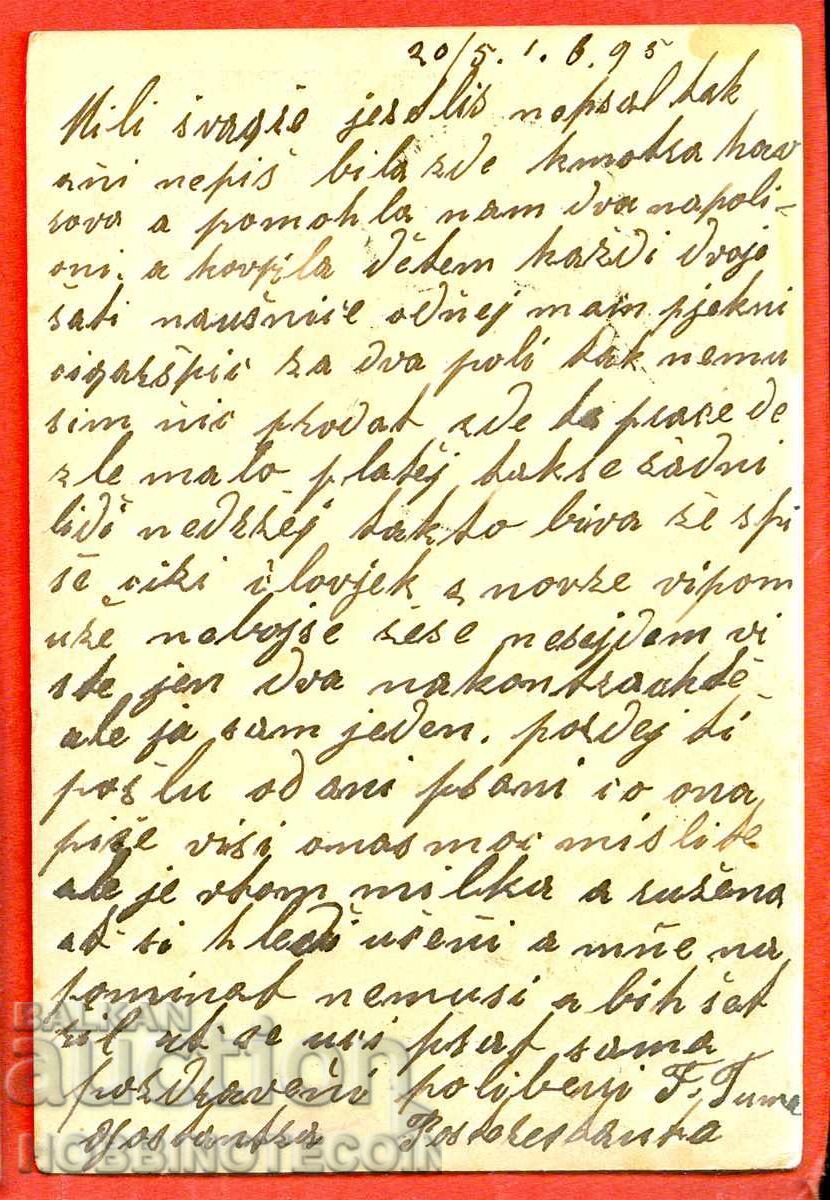 20/5. 1. 6. 95
Mili švagře jeselis nepsal tak
ani nepiš bila zde kmotra hav
rova a pomohla nam dva napoli-
oni. a kovpila dětem každi dvoje
šati naušnice odnej mam pjekni
cigaršpic za dva poli tak nemu
sim nic prodat zde ta prace de
zle malo platěj takse žadni
lidi nedržej takto biva že spi
še cizi človjek z novze vipom
uže nebojse žese nesejdem vi
ste jen dva nakontrachtě
ale ja sam jeden. pozdej ti
pošlu od ani psani co ona
piše visi onas moc mislite
ale je vtom milka a ružena
at si hledi učeni a mne na
pominat nemusi a bih šet
řil at se uci psat sama
pozdraveni polibeni F. Tuma
Posterestanta
BALKAN
auction
HOBBINOTECOIN